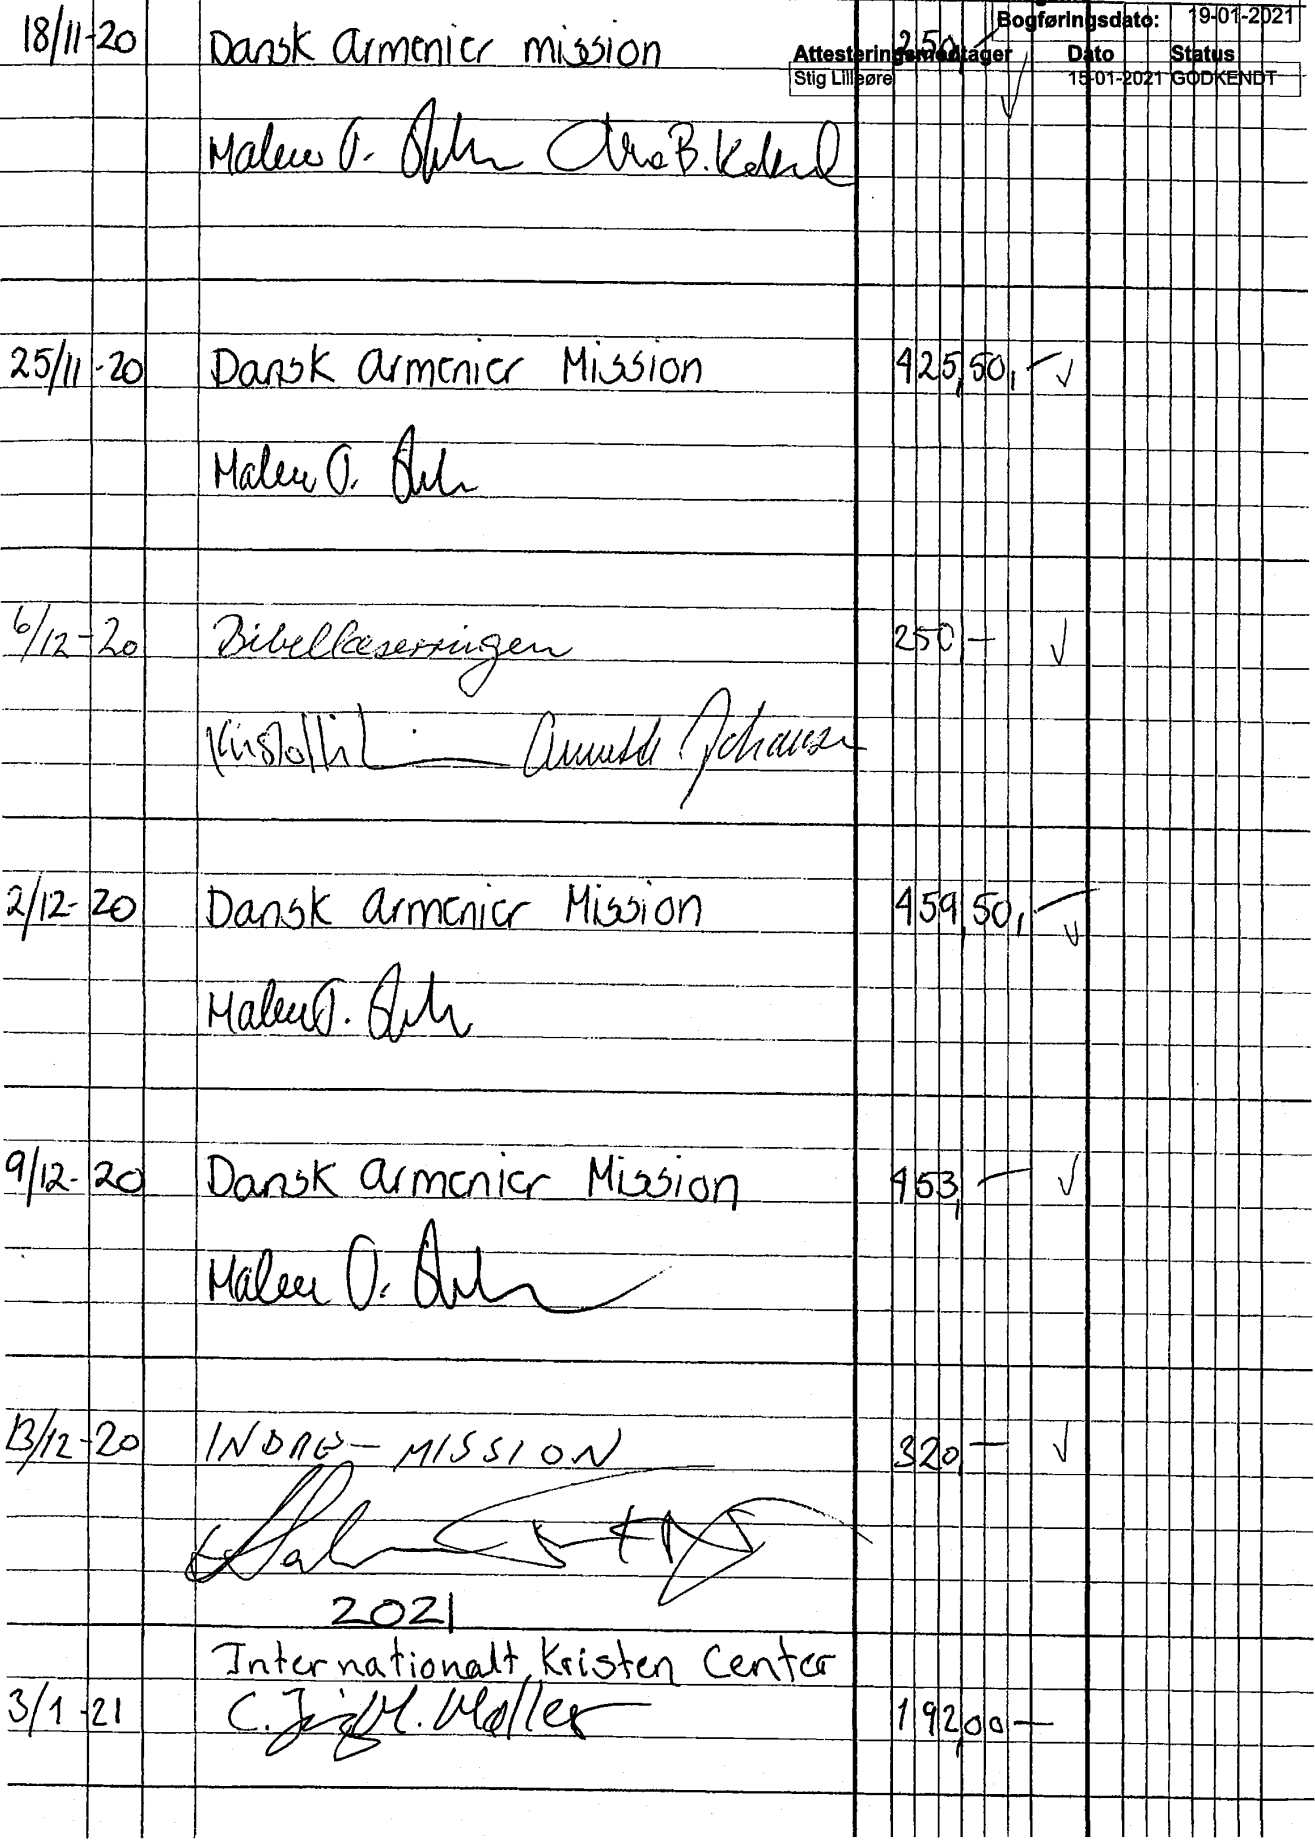 Bogføringsdato: 19-01-2021
18/11-20 Dansk Armenier mission 250,-
Attesteringsmodtager Dato Status
Stig Lilleøre 15-01-2021 GODKENDT
Malene O. B.
25/11-20 Dansk Armenier Mission 425,50,-
Malene O.
6/12-20 Bibellæserringen 250,-
Annette Johansen
2/12-20 Dansk Armenier Mission 459,50,-
Malene O.
9/12-20 Dansk Armenier Mission 453,-
Malene O.
13/12-20 INDRE-MISSION 320,-
2021
Internationalt Kristen Center
3/1-21 C. M. Møller 192,00-